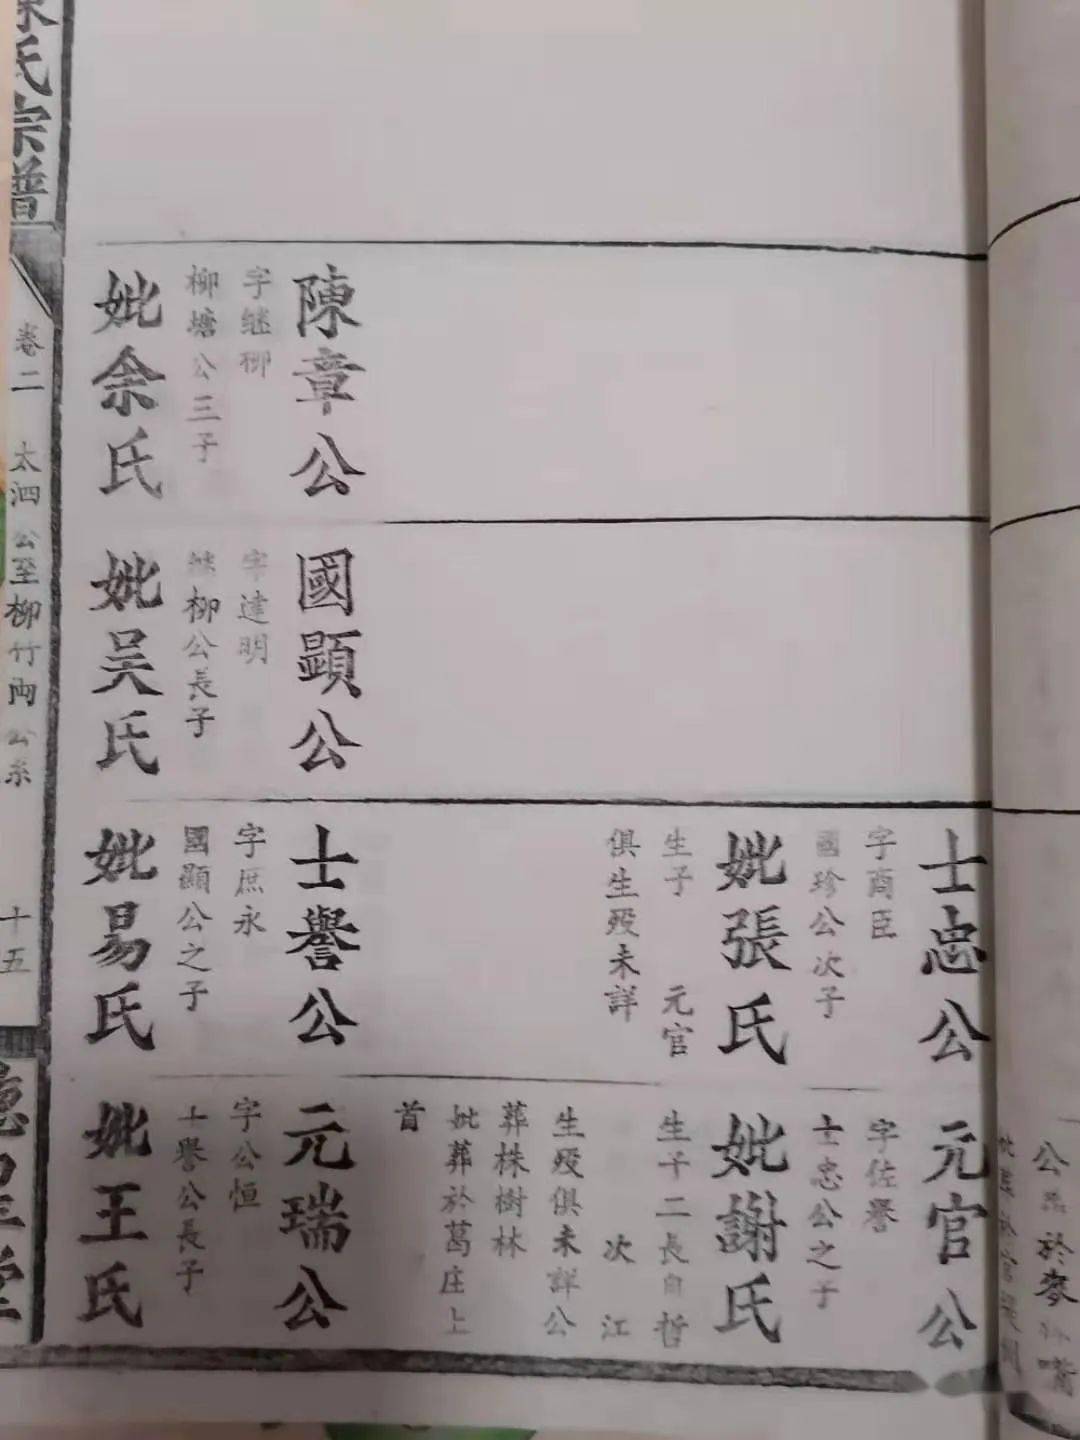 士忠公
字商臣
國珍公次子
妣張氏
生子 元官
俱生殁未詳
元官公
字佐譽
士忠公之子
妣謝氏
生子二長自哲
次江
生殁俱未詳公
葬株樹林
妣葬於葛庄上
首
陳章公
字继柳
柳塘公三子
妣余氏
國顕公
字達明
继柳公長子
妣吴氏
士譽公
字庶永
國顯公之子
妣易氏
元瑞公
字公恒
士譽公長子
妣王氏
陳氏宗譜
卷二 太泗公至柳竹両公系
十五